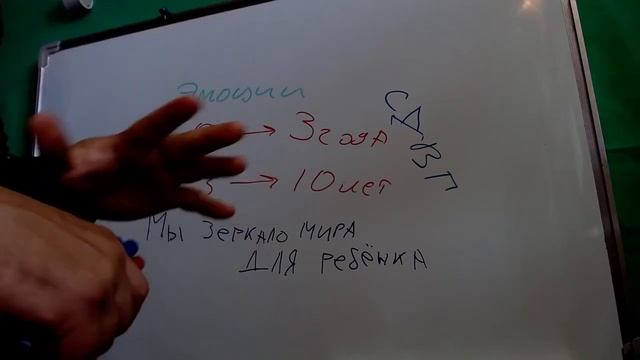 Эмоции
→ 3 года
3 → 10 лет
СДВГ
Мы зеркало мира
для ребёнка